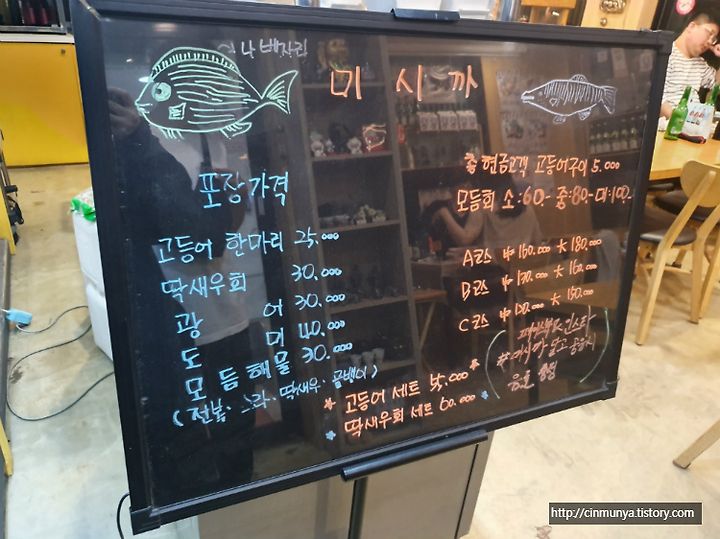 미시까
포장가격
고등어 한마리 25.000
딱새우회 30.000
광어 30.000
도미 40.000
모듬해물 30.000
(전복· 딱새우·골뱅이)
현금고객 고등어구이 5.000
모듬회 소:60- 중:80- 대:100-
A코스 中 160.000 大 180.000
B코스 中 130.000 大 160.000
C코스 中 100.000 大 150.000
* 고등어 세트 45.000 *
* 딱새우회 세트 60.000 *
인스타
#미시까 달고
음료
http://cinmunya.tistory.com